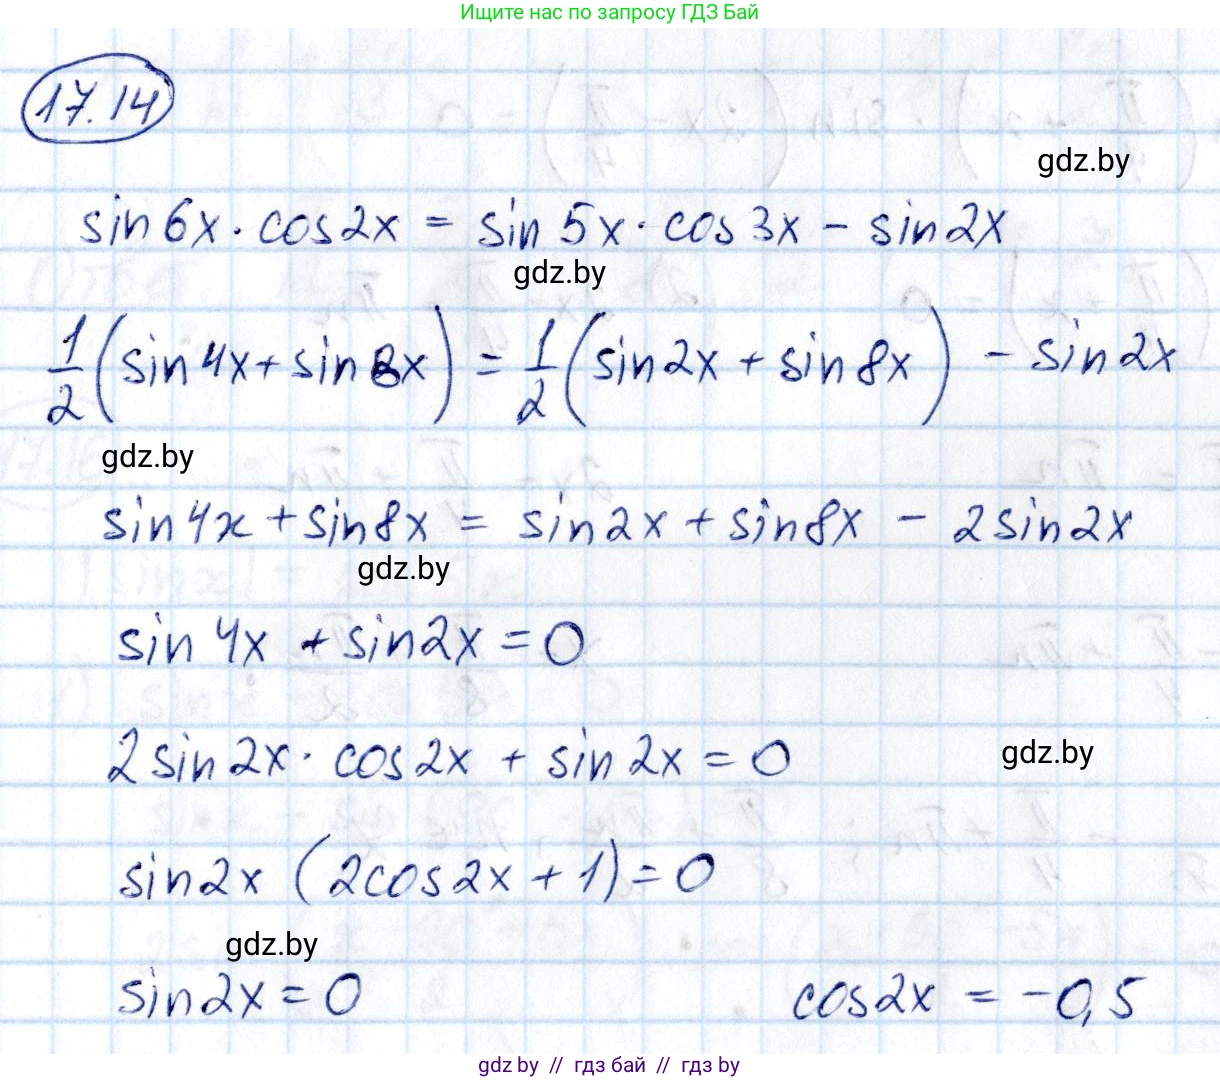 Ищите нас по запросу ГДЗ Бай
17.14
gdz.by
sin6x · cos2x = sin5x · cos3x - sin2x
gdz.by
1/2 (sin4x + sin8x) = 1/2 (sin2x + sin8x) - sin2x
gdz.by
sin4x + sin8x = sin2x + sin8x - 2sin2x
gdz.by
sin4x + sin2x = 0
2sin2x · cos2x + sin2x = 0
gdz.by
sin2x (2cos2x + 1) = 0
gdz.by
sin2x = 0 cos2x = -0,5
gdz by // гдз бай // гдз by